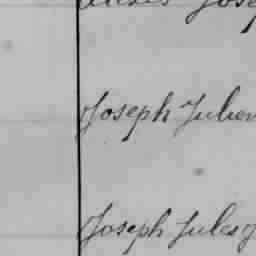 Jose
Joseph Julien
Joseph Jules J